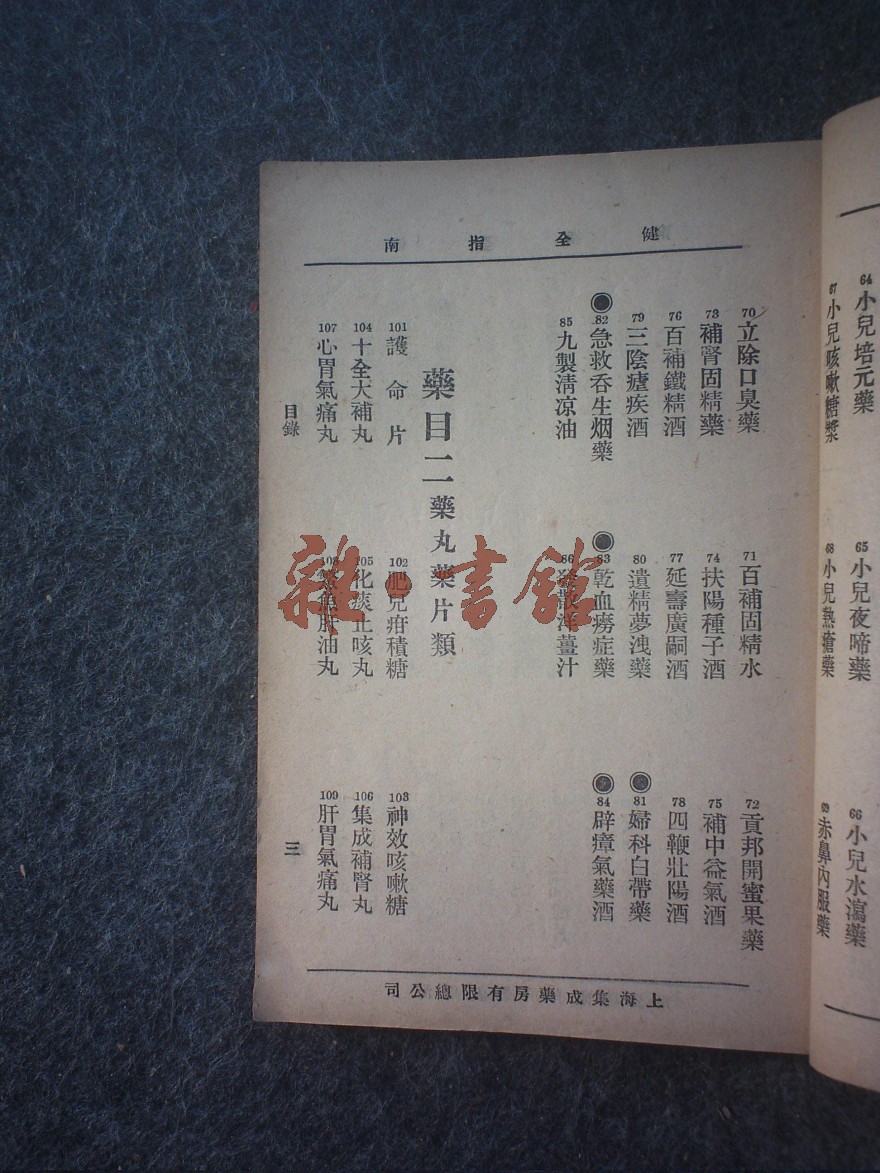 健全指南
70 立除口臭藥
71 百補固精水
72 貢邦開蜜果藥
73 補腎固精藥
74 扶陽種子酒
75 補中益氣酒
76 百補鐵精酒
77 延壽廣嗣酒
78 四鞭壯陽酒
79 三陰瘧疾酒
80 遺精夢洩藥
81 婦科白帶藥
82 急救吞生烟藥
83 乾血癆症藥
84 辟瘴氣藥酒
85 九製淸凉油
86 發散洋薑汁
藥目二 藥丸藥片類
101 護命片
102 肥兒疳積糖
103 神效咳嗽糖
104 十全大補丸
105 化痰止咳丸
106 集成補腎丸
107 心胃氣痛丸
108 魚肝油丸
109 肝胃氣痛丸
目錄
三
上海集成藥房有限總公司
64 小兒培元藥
65 小兒夜啼藥
66 小兒水瀉藥
67 小兒咳嗽糖漿
68 小兒熱瘡藥
69 赤鼻內服藥
雜·書館